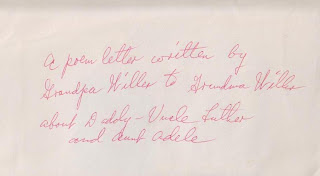 a poem letter written by
Grandpa Willer to Grandma Willer
about Daddy - Uncle Luther
and aunt adele